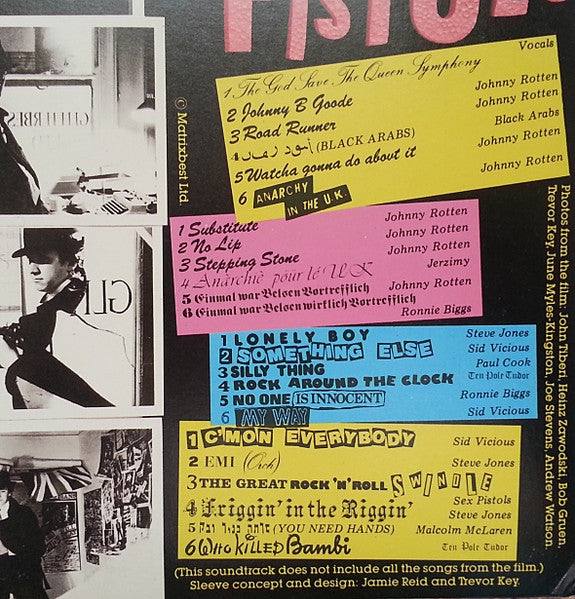 PISTOLS
Vocals
1 The God Save The Queen Symphony
2 Johnny B Goode Johnny Rotten
3 Road Runner Johnny Rotten
4 (BLACK ARABS) Black Arabs
5 Watcha gonna do about it Johnny Rotten
6 ANARCHY IN THE U.K. Johnny Rotten
1 Substitute Johnny Rotten
2 No Lip Johnny Rotten
3 Stepping Stone Johnny Rotten
4 Anarchie pour le UK Jerzimy
5 Einmal war Belsen Vortrefflich Johnny Rotten
6 Einmal war Belsen wirtlich Vortrefflich Ronnie Biggs
1 LONELY BOY Steve Jones
2 SOMETHING ELSE Sid Vicious
3 SILLY THING Paul Cook
4 ROCK AROUND THE CLOCK Ten Pole Tudor
5 NO ONE IS INNOCENT Ronnie Biggs
6 MY WAY Sid Vicious
1 C'MON EVERYBODY Sid Vicious
2 EMI (Orch) Steve Jones
3 THE GREAT ROCK 'N' ROLL SWINDLE
Sex Pistols
4 Friggin' in the Riggin' Steve Jones
5 (YOU NEED HANDS) Malcolm McLaren
6 WHO KILLED Bambi Ten Pole Tudor
(This soundtrack does not include all the songs from the film.)
Sleeve concept and design: Jamie Reid and Trevor Key.
© Matrixbest Ltd.
Photos from the film: John Tiberi, Heinz Zawodski, Bob Gruen,
Trevor Key, June Myles-Kingston, Joe Stevens, Andrew Watson.